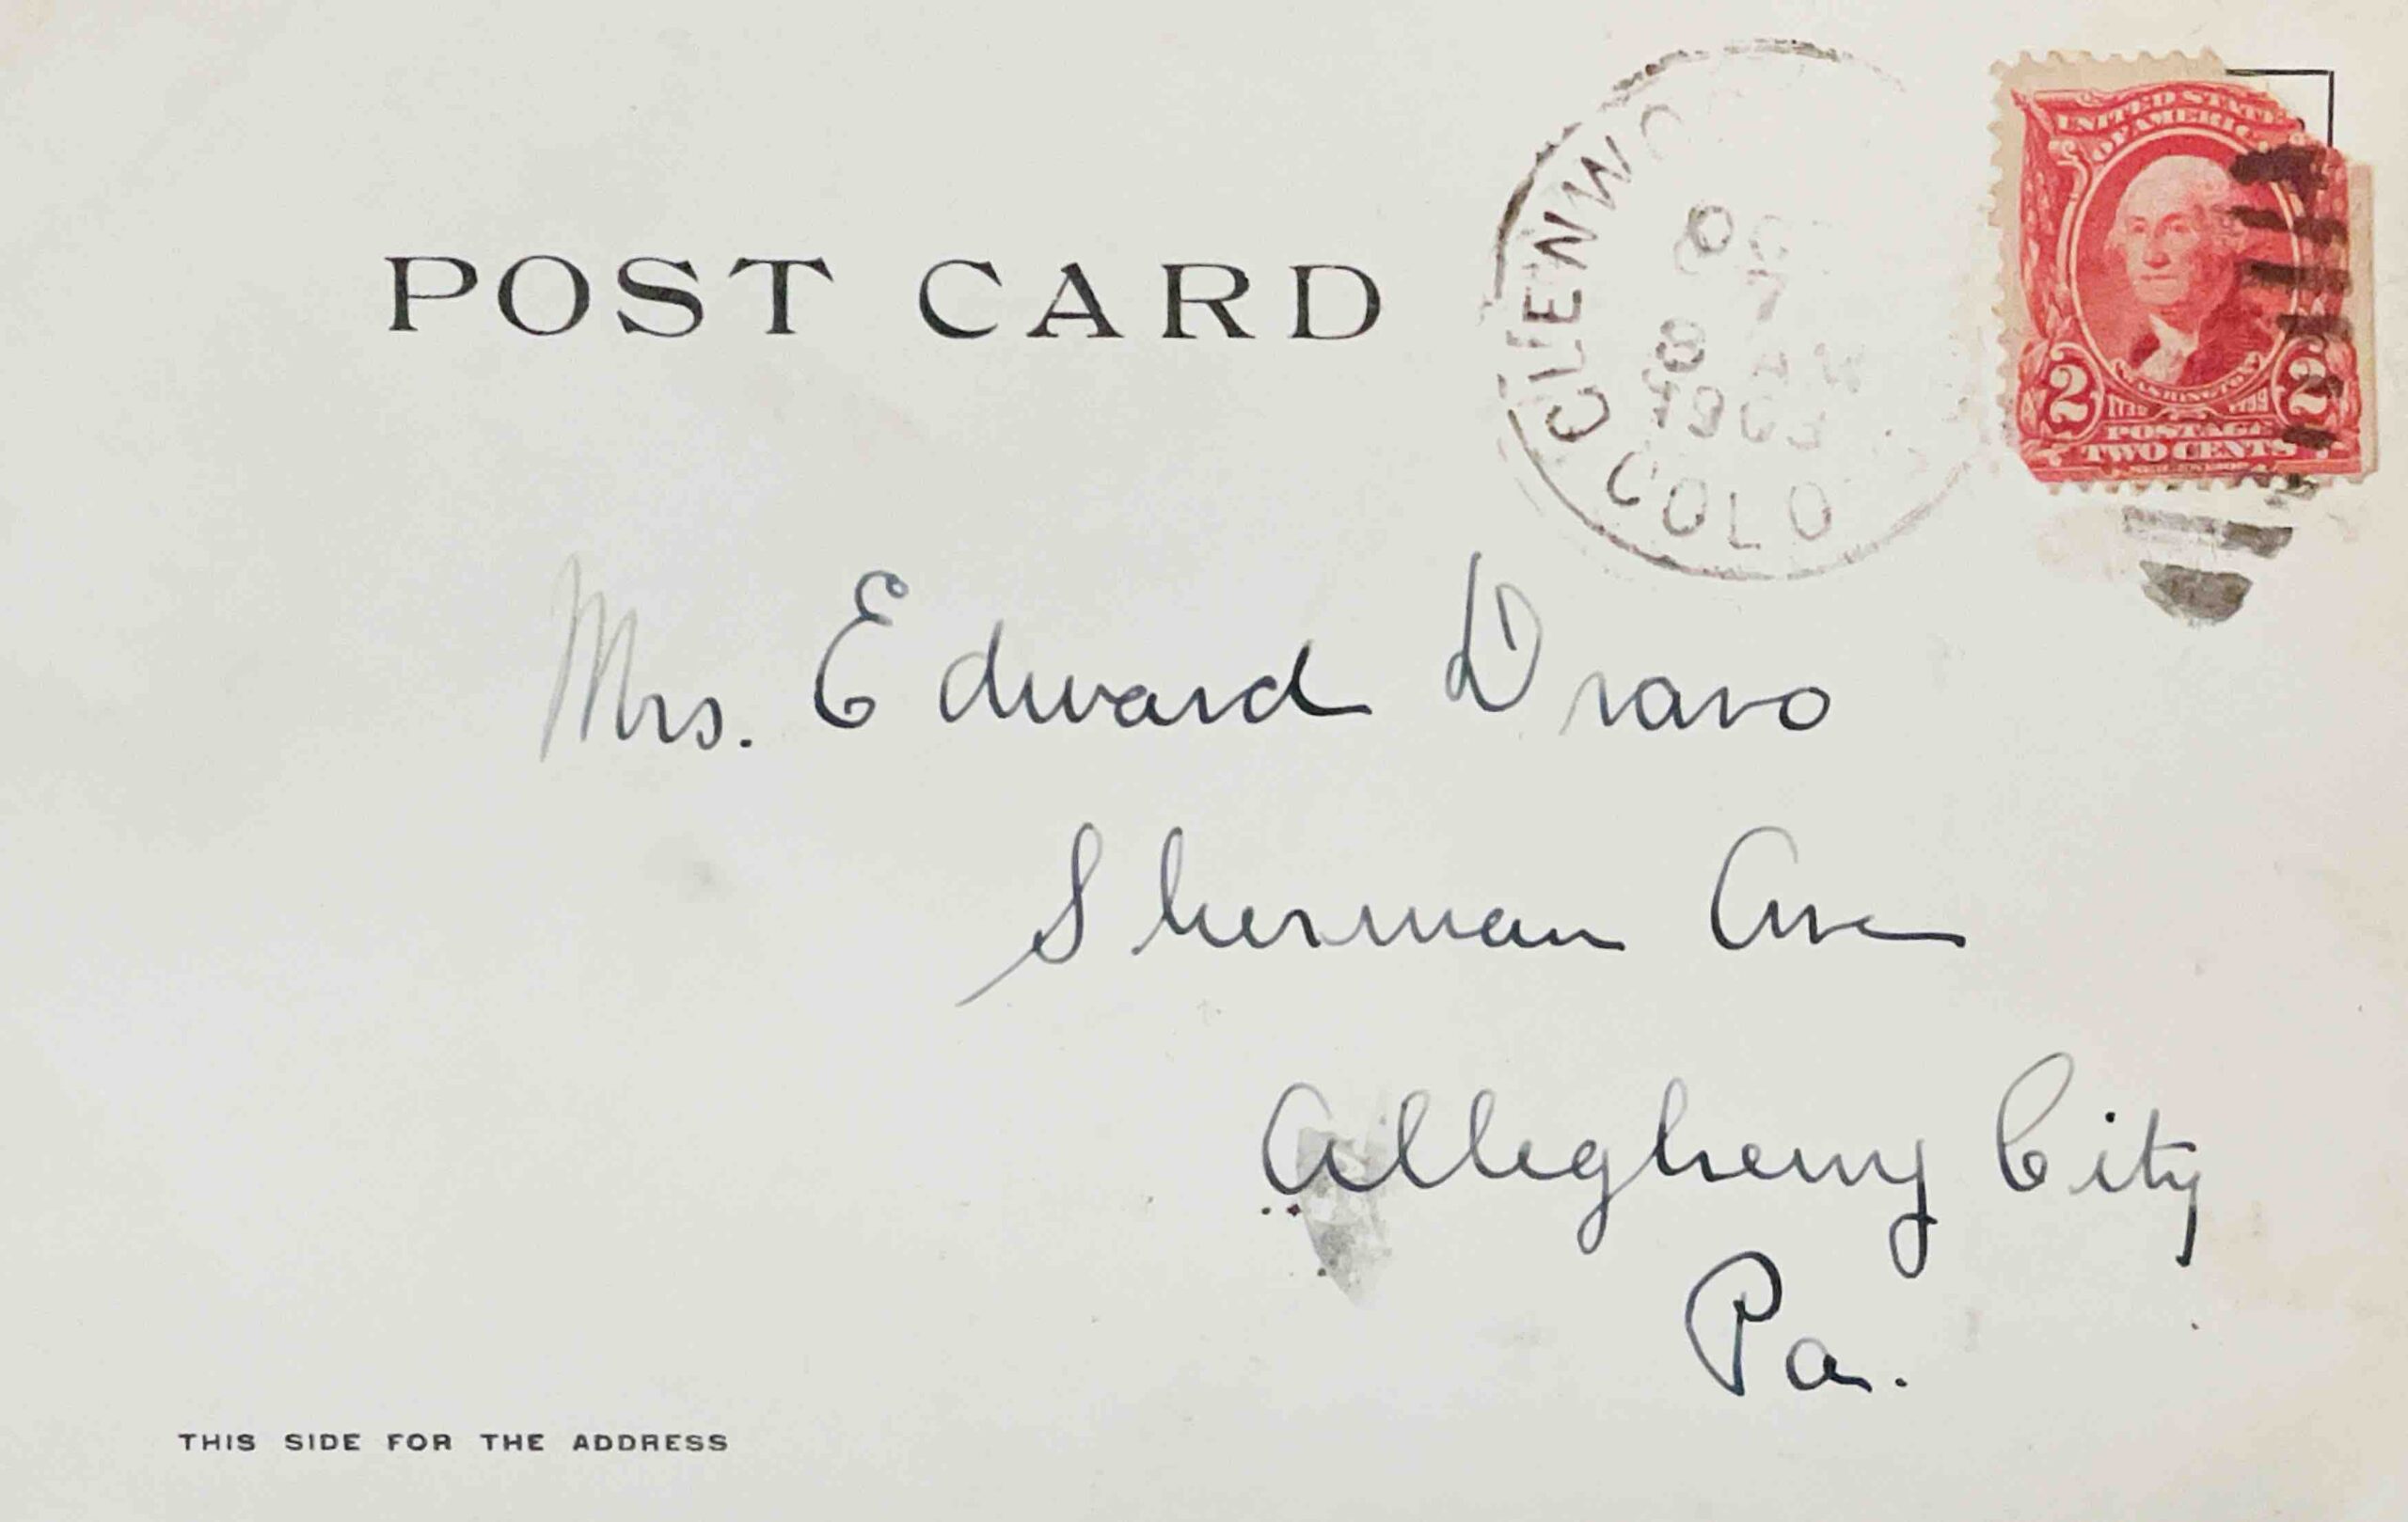 POST CARD
GLENWO
OCT
7
8 AM
1903
COLO
UNITED STATES
OF AMERICA
WASHINGTON
1732 1799
2 2
POSTAGE
TWO CENTS
Mrs. Edward Dravo
Sherman Ave
Allegheny City
Pa.
THIS SIDE FOR THE ADDRESS